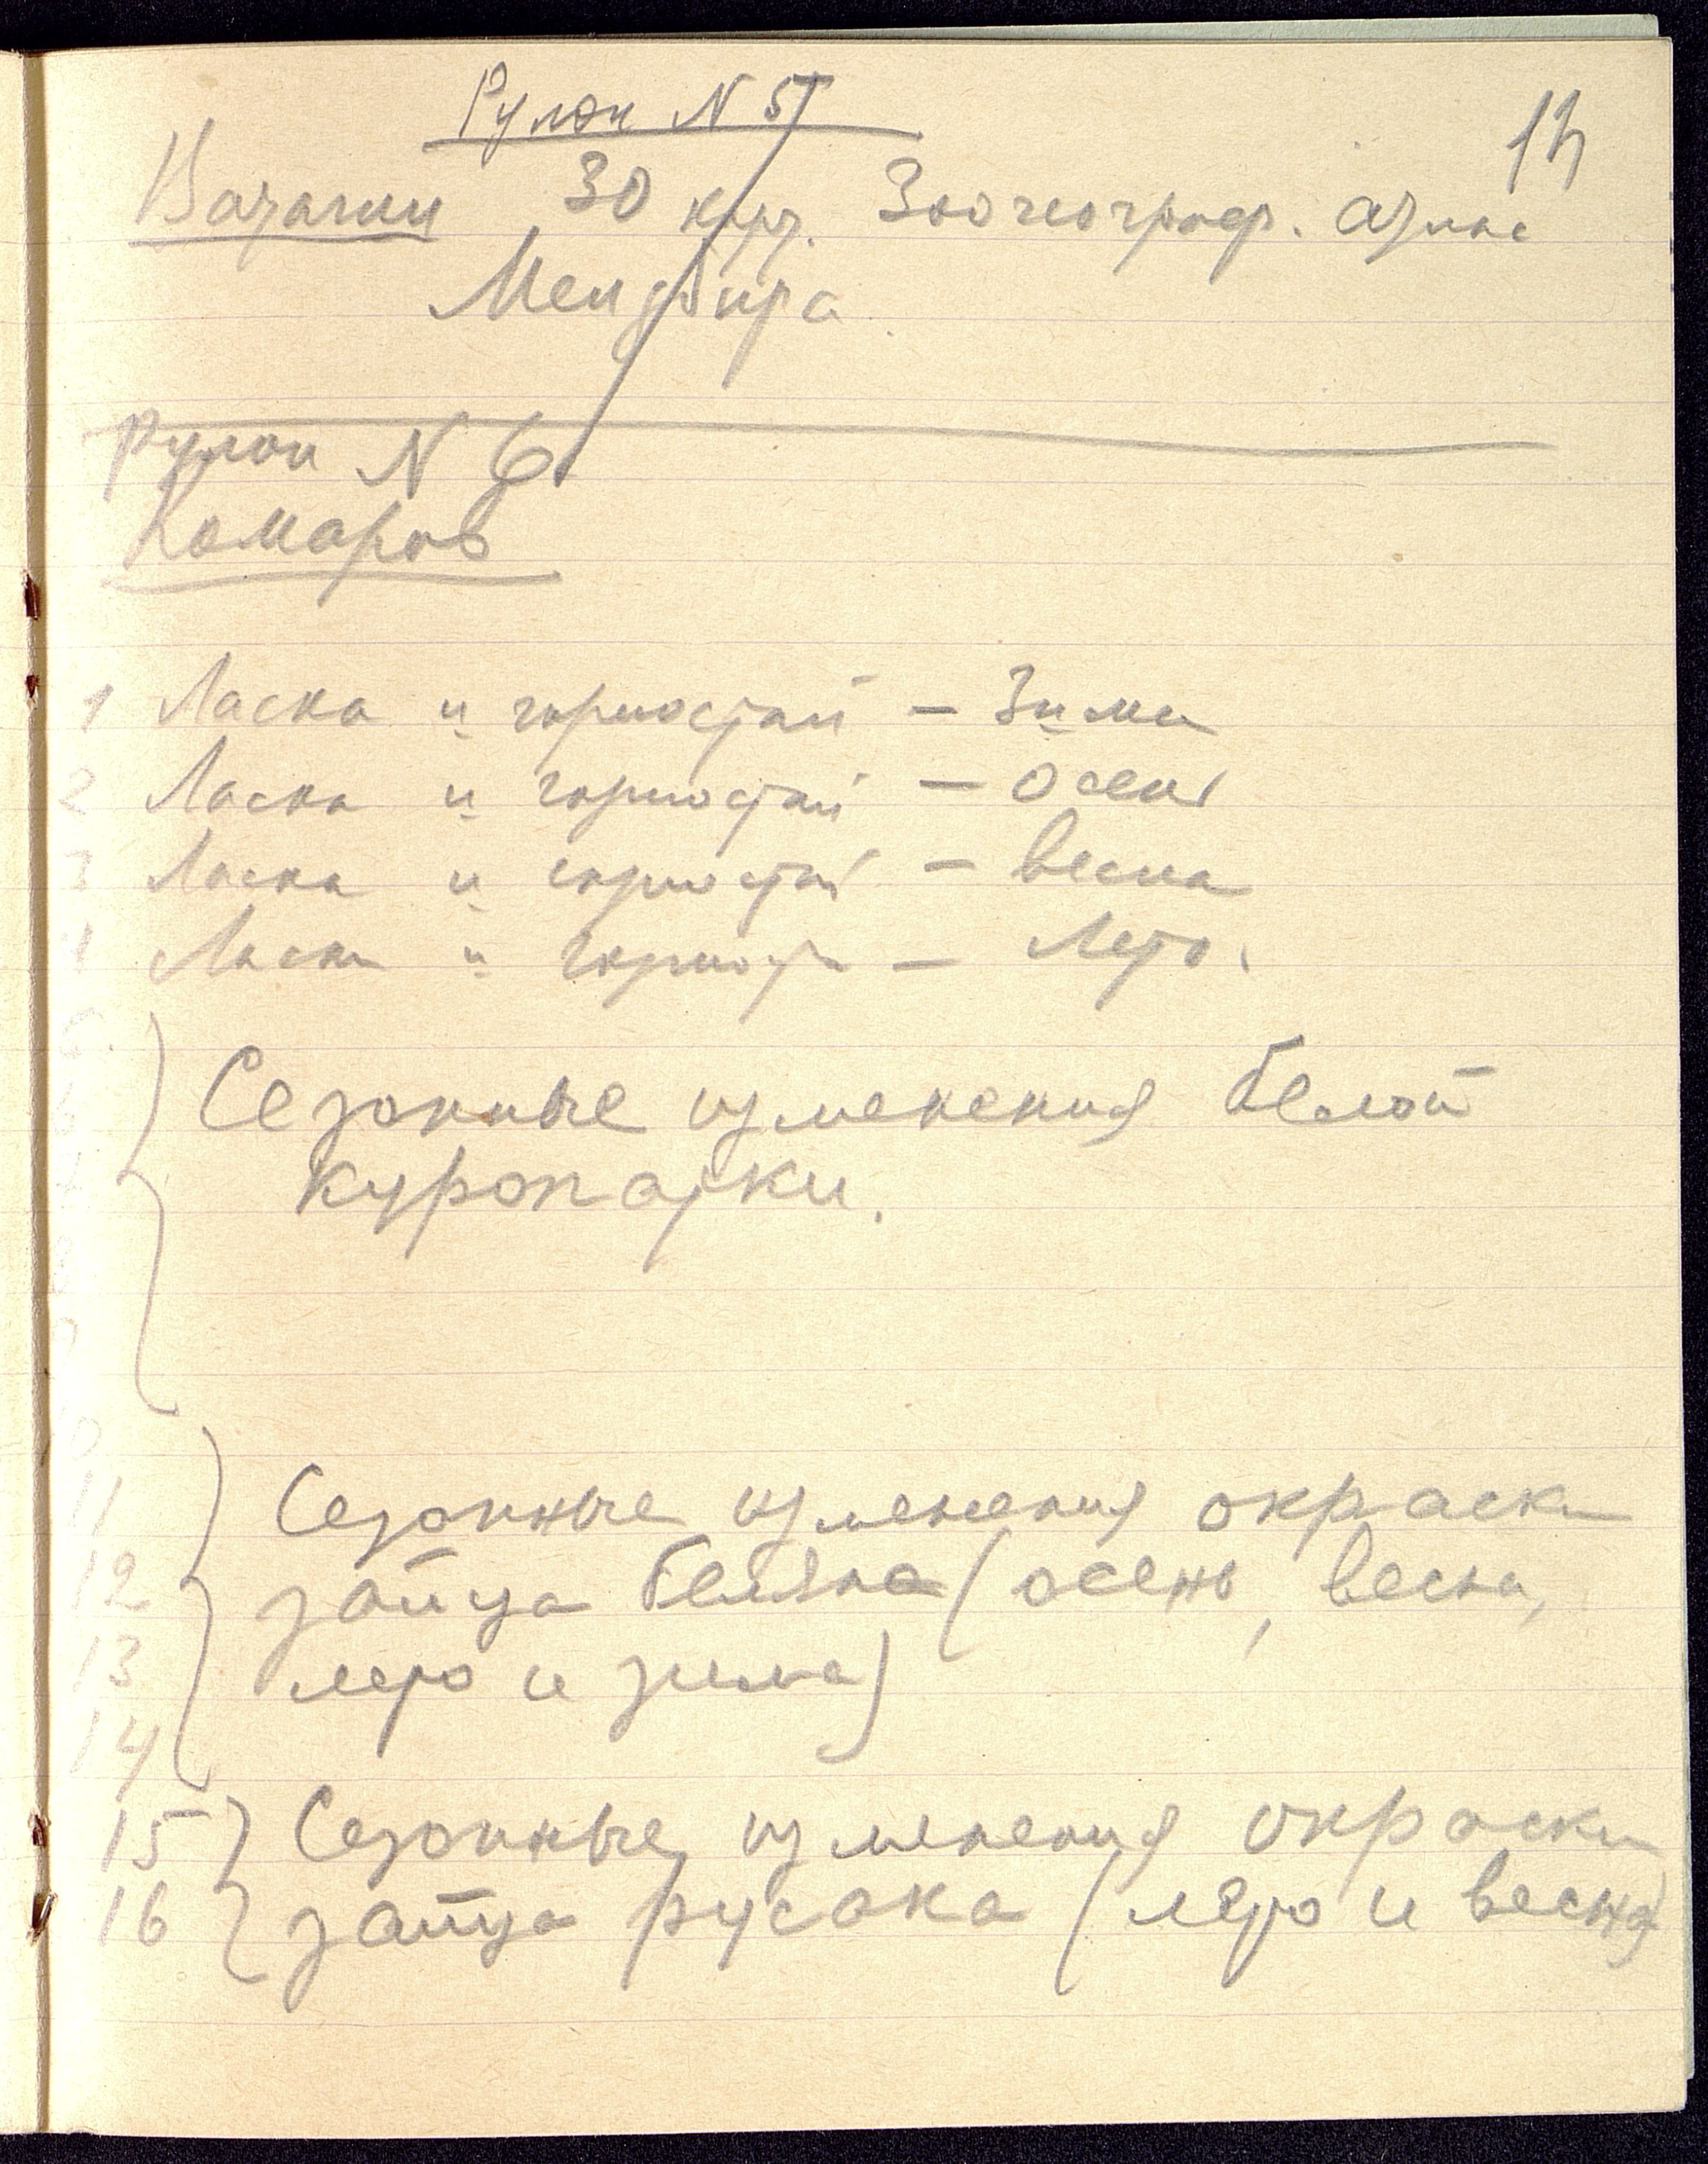 Рулон N 5
Ватагин 30 карт. Зоогеограф. атлас
Мензбира
рулон N 6
Комаров
1 Ласка и горностай – Зима
2 Ласка и горностай – осень
3 Ласка и горностай – весна
4 Ласка и горност – Лето.
Сезонные изменения белой
куропатки.
11 Сезонные изменения окраски
12 зайца беляка (осень, весна,
13 лето и зима)
14
15 Сезонные изменения окраски
16 зайца русака (лето и весна)